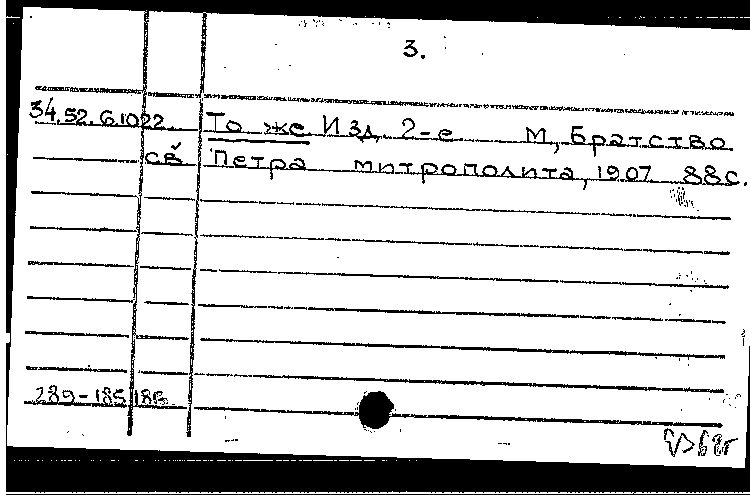 3.
34.52.6.1022 То же Изд. 2-е М, Братство
св Петра митрополита, 1907 88с.
289-185